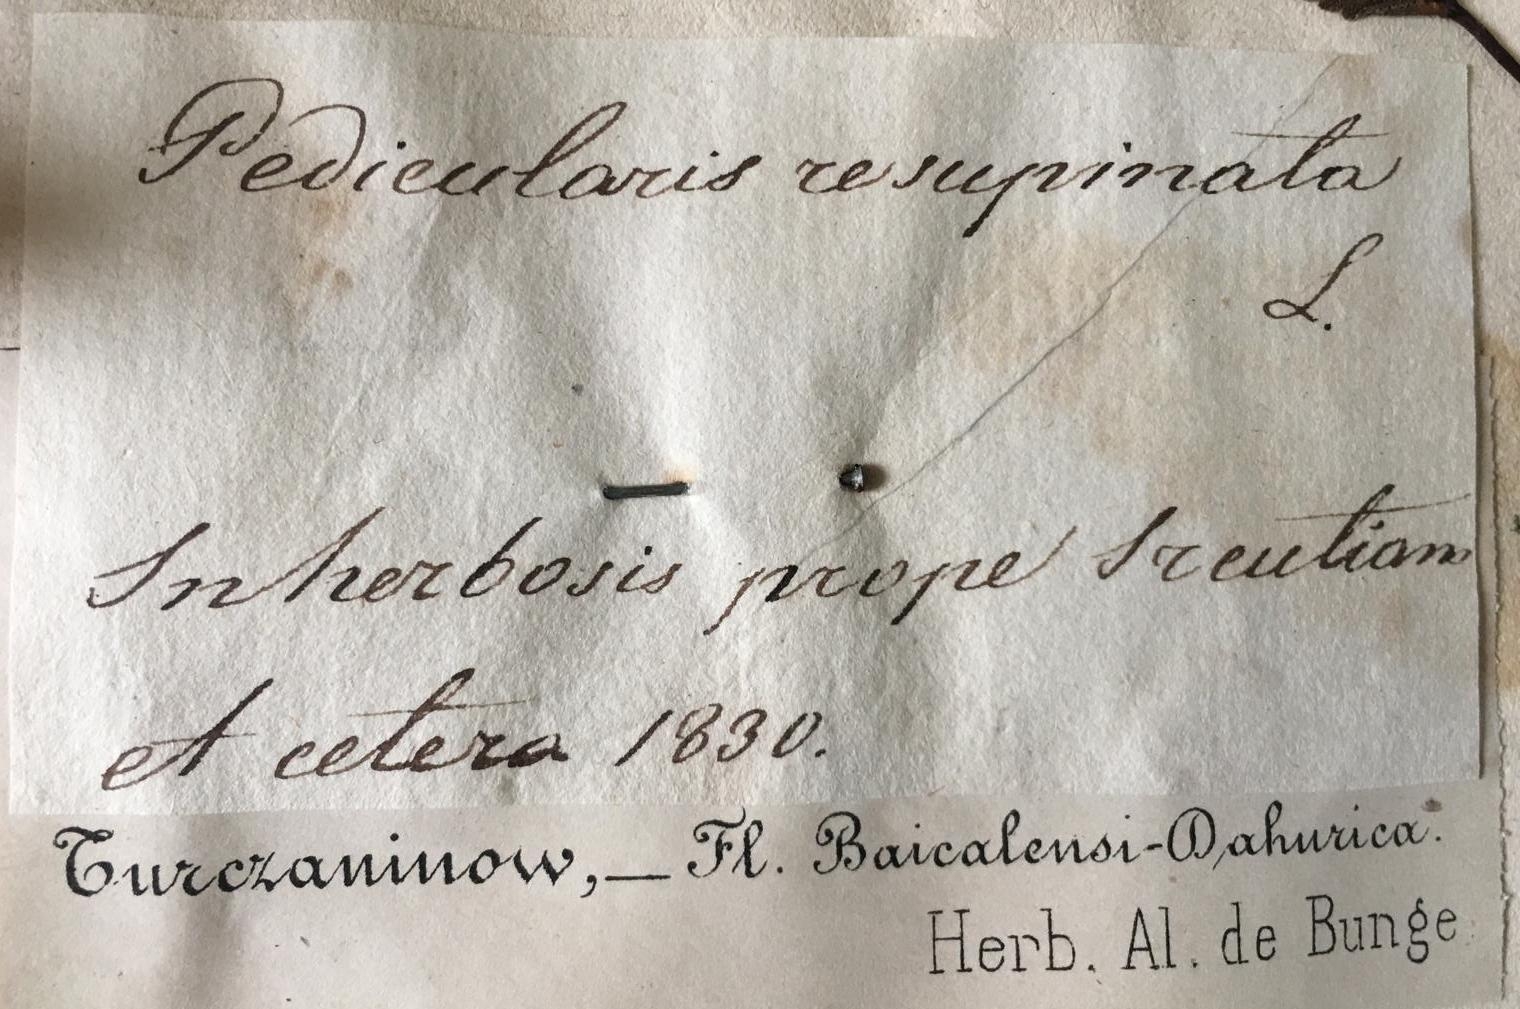 Pedicularis resupinata
L.
In herbosis prope Ircutiam
et cetera 1830.
Turczaninow, — Fl. Baicalensi-Dahurica.
Herb. Al. de Bunge